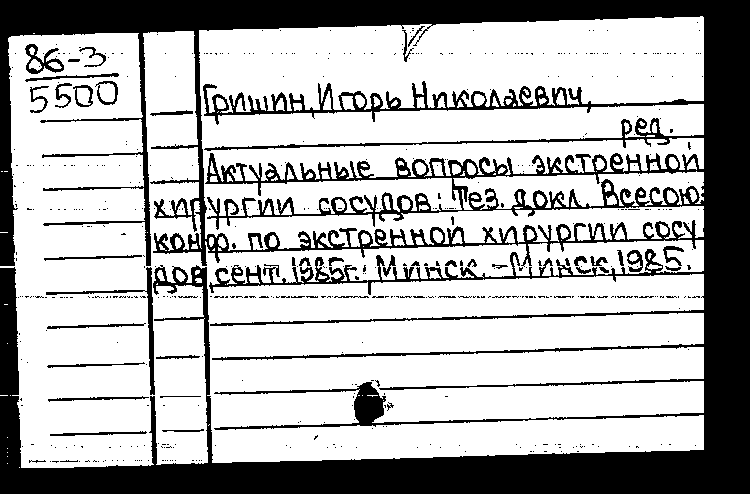 86-3
5500
Гришин, Игорь Николаевич,
ред.
Актуальные вопросы экстренной
хирургии сосудов: Тез. докл. Всесоюз
конф. по экстренной хирургии сосу-
дов, сент. 1985г., Минск. - Минск, 1985.